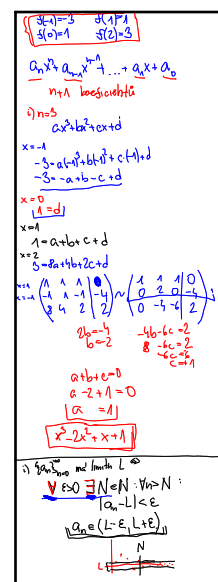 f(-1)=-3 f(1)=1
f(0)=1 f(2)=3
aₙxⁿ+aₙ₋₁xⁿ⁻¹+...+a₁x+a₀
n+1
i) n=3
ax³+bx²+cx+d
x=-1
-3=a(-1)³+b(-1)²+c·(-1)+d
-3=-a+b-c+d
x=0
1=d
x=1
1=a+b+c+d
x=2
3=8a+4b+2c+d
x=1 (1 1 1 | 0) ~ (1 1 1 | 0)
x=-1 (-1 1 -1 | -4) (0 2 0 | -4) ;
(8 4 2 | 2) (0 -4 -6 | 2)
2b=-4 -4b-6c=2
b=-2 8-6c=2
-6c=-6
c=1
a+b+c=0
a-2+1=0
a=1
x³-2x²+x+1
i) {aₙ}ₙ₌₀^∞ L ⇔
∀ε>0 ∃N∈ℕ :∀n>N :
|aₙ-L|<ε
aₙ∈(L-ε,L+ε)
N
L